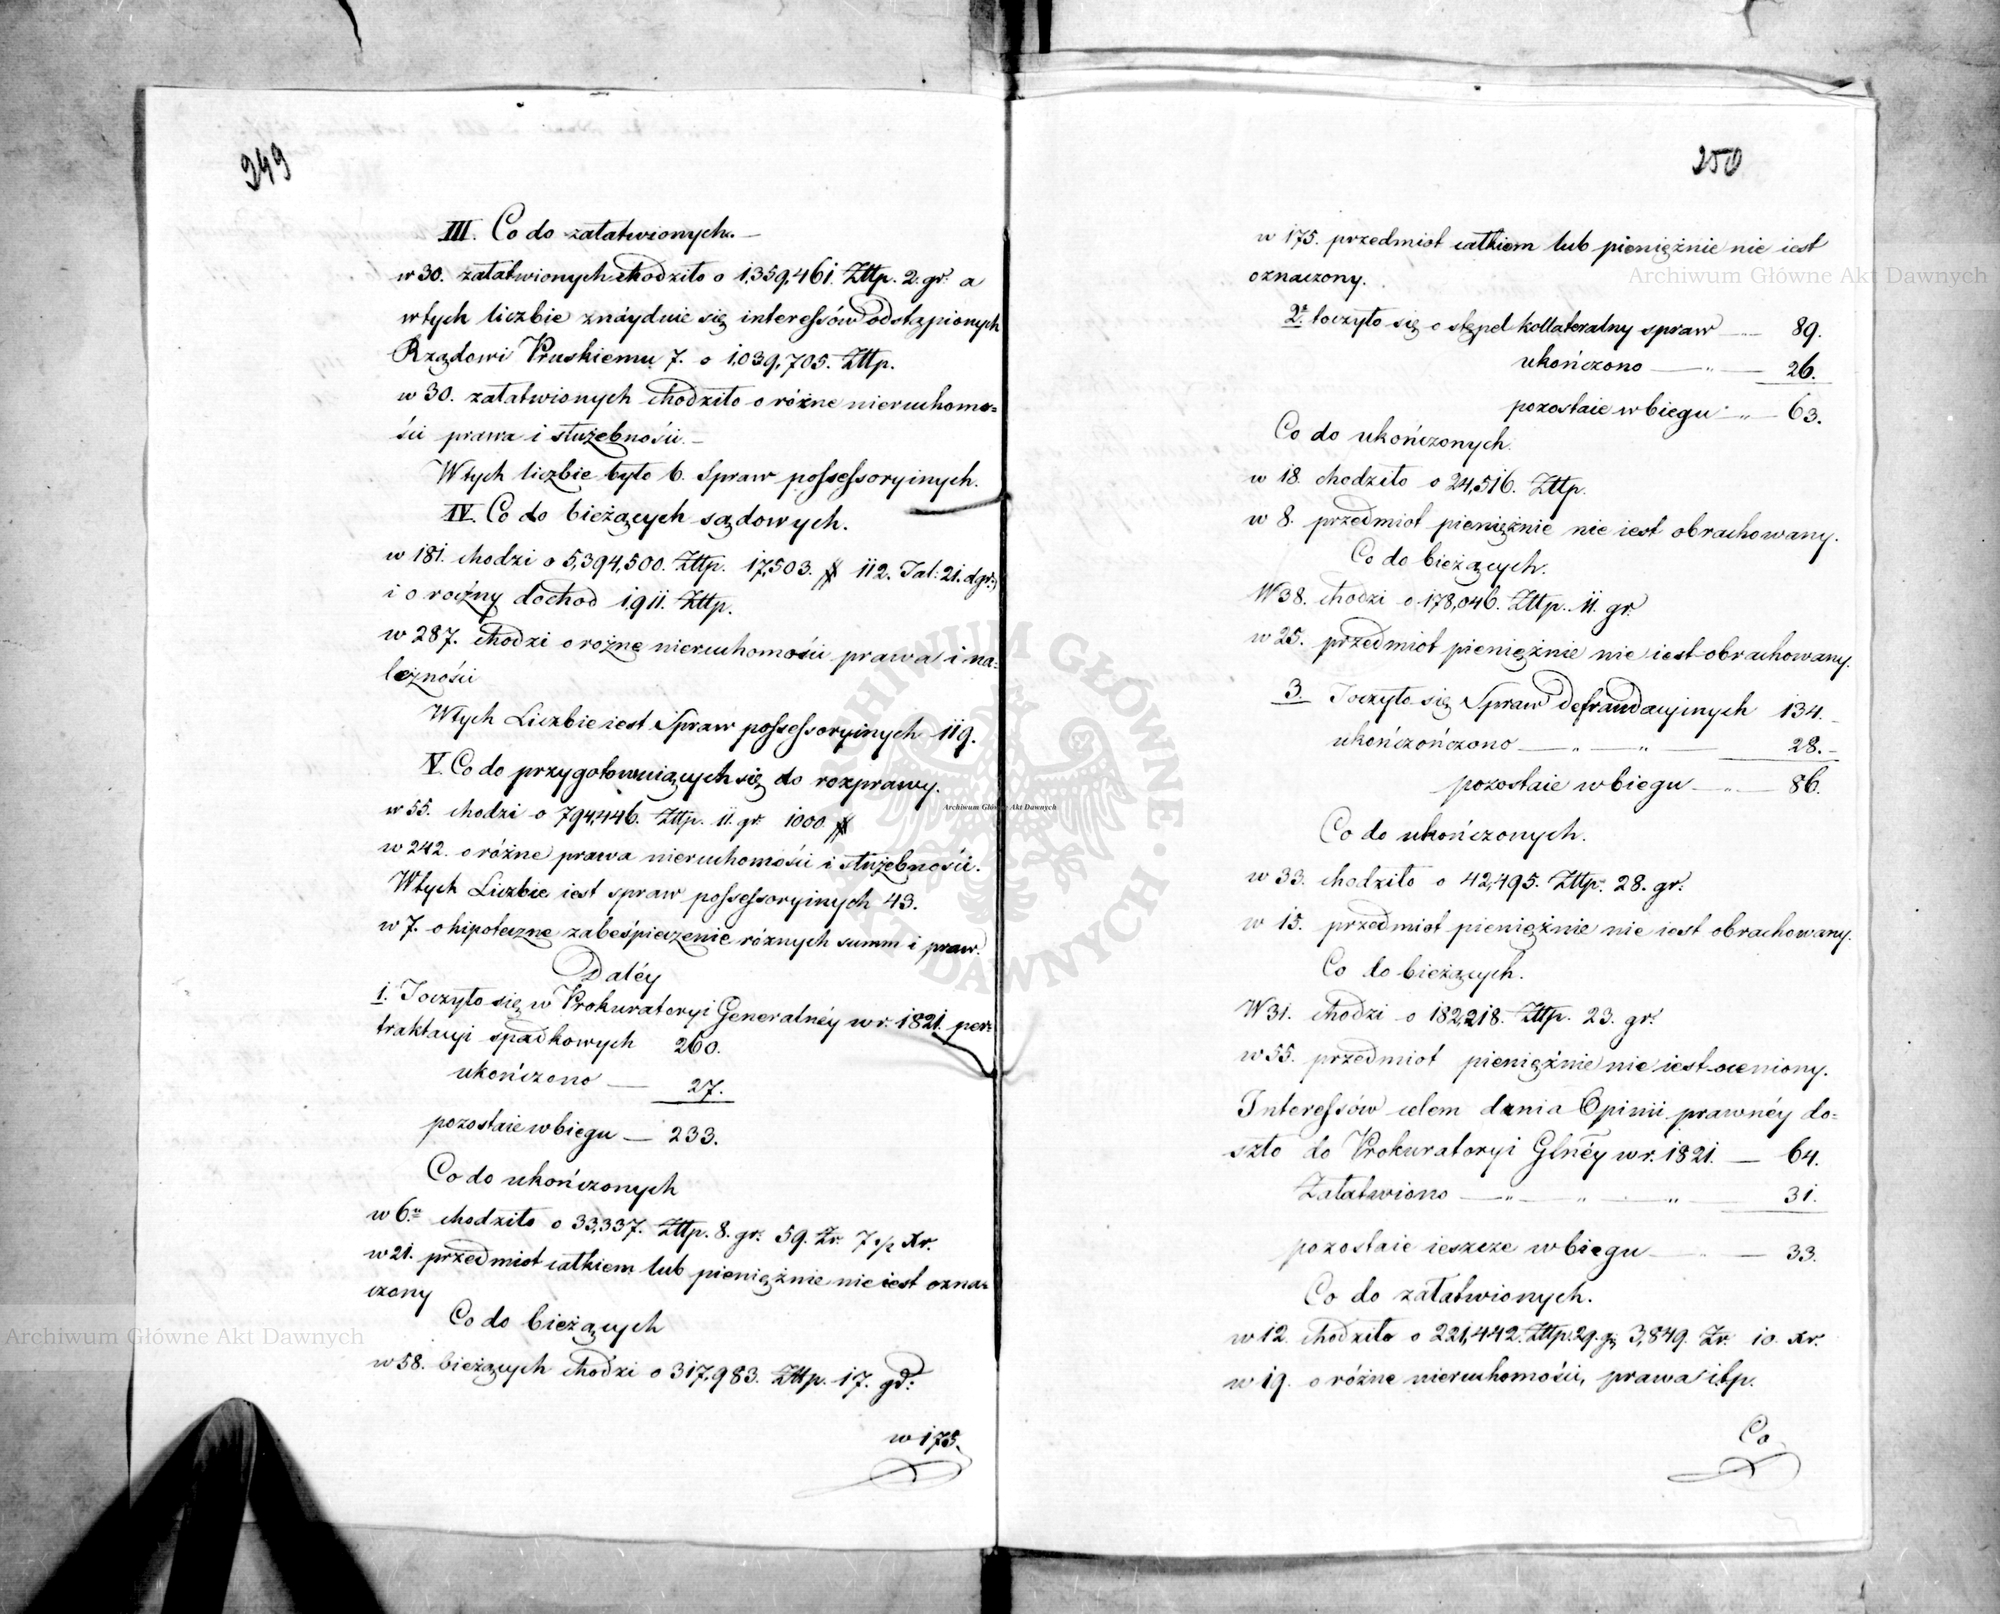 249
III. Co do załatwionych.—
w 30. załatwionych chodziło o 1,359,461. Złłp. 2. gr. a
wtych liczbie znáyduie się interessów odstąpionych
Rządowi Pruskiemu 7. o 1,039,705. Złłp.
w 30. załatwionych chodziło o różne nieruchomo=
ści prawa i służebności.—
Wtych liczbie było 6. Spraw possessoryinych.
IV. Co do bieżących sądowych.
w 181. chodzi o 5,394,500. Złłp. 17,503. # 112. Tal: 21. dgr:
i o roczny dochod 1,911. Złłp.
w 287. chodzi o rożne nieruchomości prawa i na=
leżności
Wtych Liczbie iest Spraw possessoryinych 119.
V. Co do przygotowuiących się do rozprawy.
w 55. chodzi o 794,446. Złłp. 11. gr. 1000. #
w 242. o różne prawa nieruchomości i służebności.
Wtych Liczbie iest spraw possessoryinych 43.
w 7. o hipoteczne zabeśpieczenie różnych summ i praw.
Daléy
1. Toczyło się w Prokuratoryi Generalnéy w r. 1821. per=
traktacyi spadkowych 260.
ukończono — 27.
pozostaie w biegu — 233.
Co do ukończonych
w 6. chodziło o 33,337. Złłp. 8. gr. 59. Zr. 7 Xr.
w 21. przedmiot całkiem lub pieniężnie nie iest ozna=
czony
Co do bieżących
w 58. bieżących chodzi o 317,983. Złłp. 17. gd:
w 175.
250
w 175. przedmiot całkiem lub pieniężnie nie iest
oznaczony.
2. toczyło się o stępel kollateralny spraw — 89.
ukończono — „ — 26.
pozostaie w biegu „ — 63.
Co do ukończonych.
w 18. chodziło o 24,516. Złłp.
w 8. przedmiot pieniężnie nie iest obrachowany.
Co do bieżących.
W 38. chodzi o 178,046. Złłp. 11. gr
w 25. przedmiot pieniężnie nie iest obrachowany.
3. Toczyło się Spraw defraudacyinych 134.
ukończończono — „ — „ — 28.
pozostaie w biegu — „ — 86.
Co do ukończonych.
w 33. chodziło o 42,495. Złłp. 28. gr:
w 15. przedmiot pieniężnie nie iest obrachowany.
Co do bieżących.
W 31. chodzi o 182,218. Złłp. 23. gr:
w 55. przedmiot pieniężnie nie iest oceniony.
Interessów celem dania Opinii prawnéy do=
szło do Prokuratoryi Glnéy w r. 1821. — 64.
Załatwiono — „ — „ — „ — 31.
pozostaie ieszcze w biegu — „ — 33.
Co do załatwionych.
w 12. chodziło o 221,442. Złłp. 29. gr 3,849. Zr. 10. Xr.
w 19. o różne nieruchomości, prawa itp.
Co
Archiwum Główne Akt Dawnych
Archiwum Główne Akt Dawnych
Archiwum Główne Akt Dawnych
ARCHIWUM GŁÓWNE · AKT DAWNYCH ·